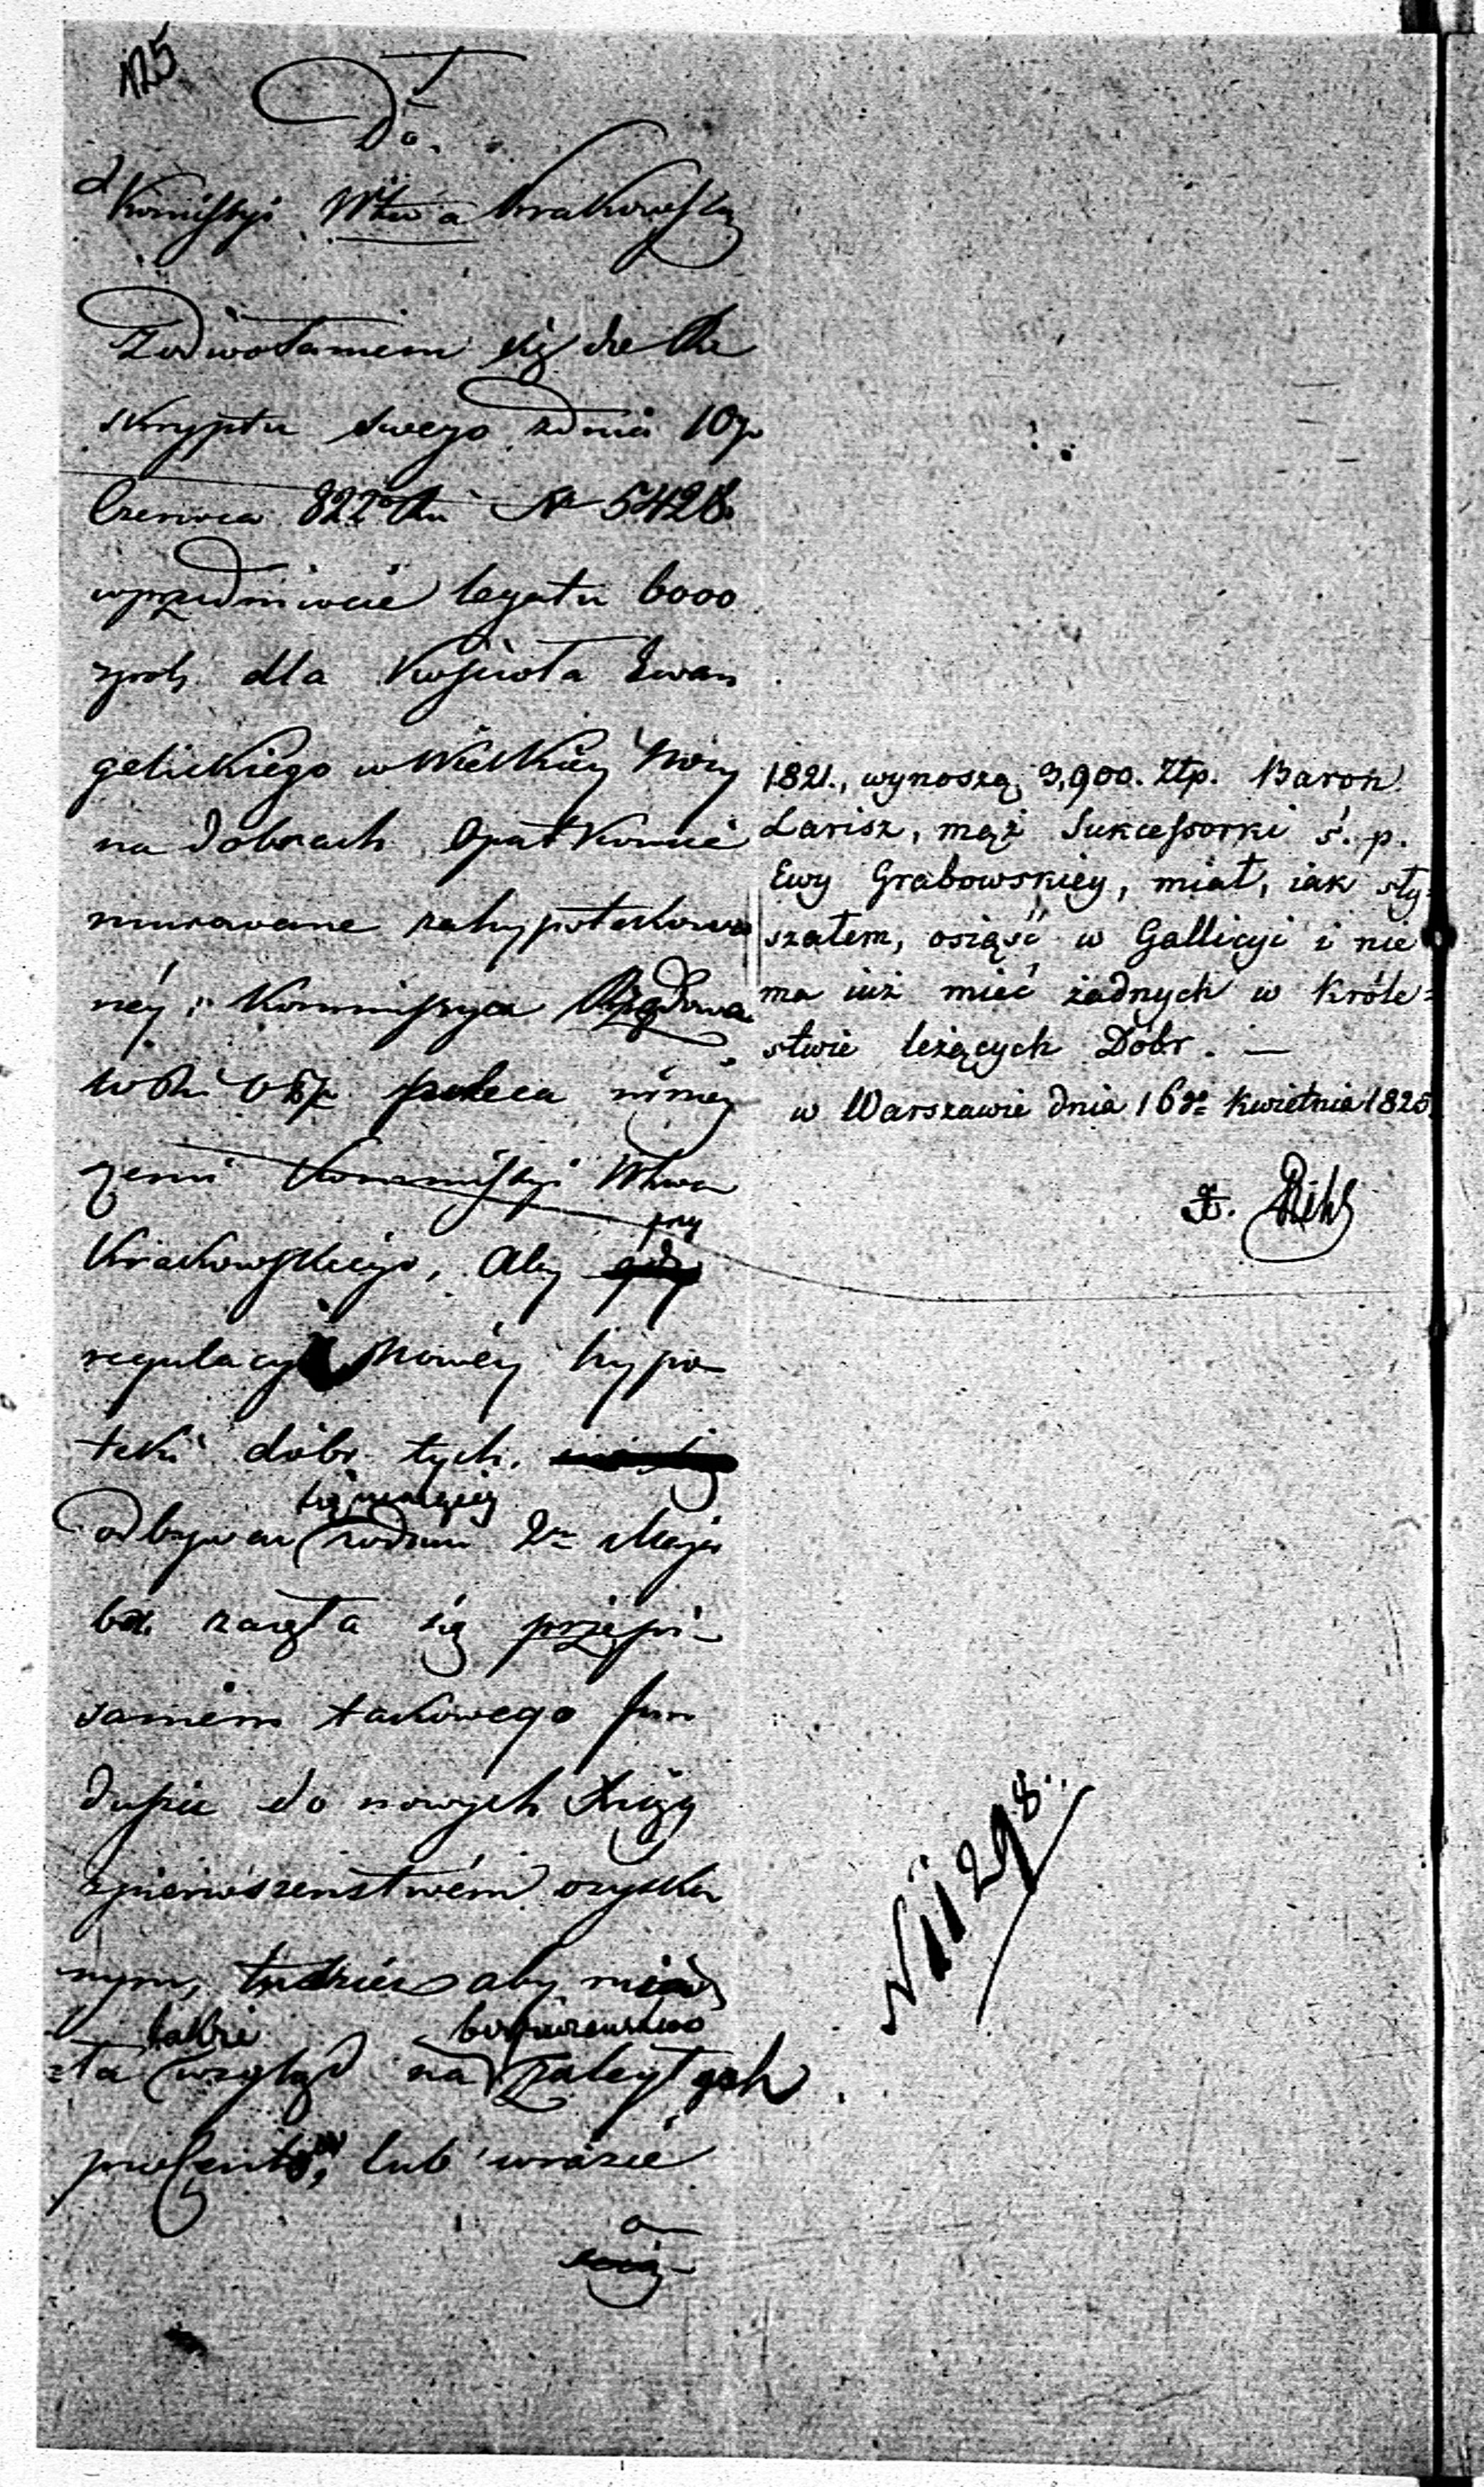 125
Do
Kommissyi Wtwa Krakowskiego
Z odwołaniem się do Re
skryptu swego z dnia 10go
Czerwca 822 Rku Nr 5428
w przedmiocie legatu 6000
złpols dla Kościoła Ewan
gelickiego w Wielkiey
na dobrach Opatkowice
murowane zahypotekowa
néy; Kommissyia Rządowa
WR i OP poleca niniey
szem Kommissyi Wtwa
Krakowskiego, aby przy
regulacyi nowéy hypo
teki dóbr tych
odbywać się maiącéy z dniem 2m Maja
br. zaięła się przepi-
saniem takowego fun
duszu do nowych Xiąg
z pierwszeństwem
nym, tudzież aby mia
=ła także wzgląd na bezpieczeństwo zaległych
procentów, lub w razie
1821., wynoszą 3,900. Złp. Baron
Larisz, mąż Sukcessorki ś. p.
Ewy Grabowskiey, miał, iak sły=
szałem, osiąść w Gallicyi i nie
ma iuż mieć żadnych w Króle=
stwie leżących Dóbr. —
w Warszawie dnia 16go Kwietnia 1825.
N 11298.